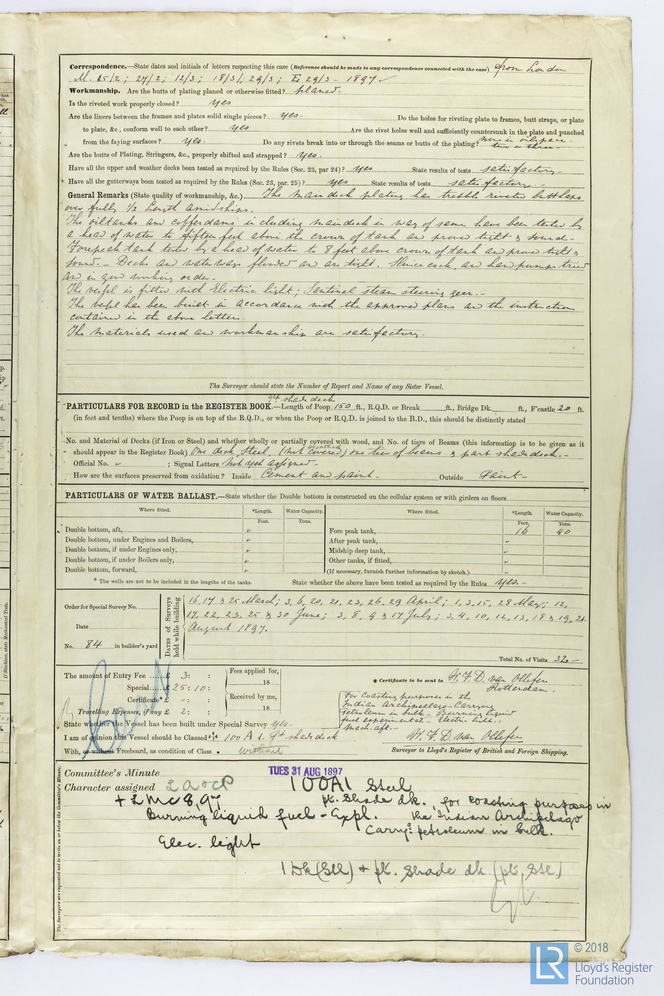 Correspondence.—State dates and initials of letters respecting this case (Reference should be made to any correspondence connected with the case) from London
M. 25/2; 27/2; 12/3; 18/3; 29/3; 29/3 - 1897
Workmanship. Are the butts of plating planed or otherwise fitted? planed.
Is the riveted work properly closed? yes
Are the liners between the frames and plates solid single pieces? yes. Do the holes for riveting plate to frames, butt straps, or plate
to plate, &c., conform well to each other? yes Are the rivet holes well and sufficiently countersunk in the plate and punched
from the faying surfaces? yes. Do any rivets break into or through the seams or butts of the plating?
Are the butts of Plating, Stringers, &c., properly shifted and strapped? yes.
Have all the upper and weather decks been tested as required by the Rules (Sec. 23, par 24)? yes State results of tests satisfactory.
Have all the gutterways been tested as required by the Rules (Sec. 23, par. 25)? yes State results of tests satisfactory.
General Remarks (State quality of workmanship, &c.) The maindeck plating has treble riveted buttlaps
over fully 1/2 length amidships.
The oiltanks and cofferdams including maindeck in way of same have been tested by
a head of water to fifteen feet above the crown of tank an prove tight & sound.
Forepeak tank tested by a head of water to 8 feet above crown of tank an prove tight &
sound. - Decks an waterways flowed an are tight. Sluice cock, an hand pumps tried
an in good working order.
The vessel is fitted with Electric light; Sentenel steam steering gear.
The vessel has been built in accordance with the approved plans an the instruction
contained in the above letters.
The materials used an workmanship are satisfactory.
The Surveyor should state the Number of Report and Name of any Sister Vessel.
PARTICULARS FOR RECORD in the REGISTER BOOK.—Length of Poop 150 ft., R.Q.D. or Break ft., Bridge Dk. ft., F'castle 20 ft.
shade deck
(in feet and tenths) where the Poop is on top of the R.Q.D., or when the Poop or R.Q.D. is joined to the B.D., this should be distinctly stated
No. and Material of Decks (if Iron or Steel) and whether wholly or partially covered with wood, and No. of tiers of Beams (this information is to be given as it
should appear in the Register Book) One deck, Steel, (not covered) one tier of beams & part shade deck.
Official No. ; Signal Letters Not yet assigned
How are the surfaces preserved from oxidation? Inside Cement and paint. Outside Paint
PARTICULARS OF WATER BALLAST.—State whether the Double bottom is constructed on the cellular system or with girders on floors
Where fitted. *Length. Water Capacity. Where fitted. *Length. Water Capacity.
Feet. Tons. Feet. Tons.
Double bottom, aft, Fore peak tank, 16 40
Double bottom, under Engines and Boilers, After peak tank,
Double bottom, if under Engines only, Midship deep tank,
Double bottom, if under Boilers only, Other tanks, if fitted,
Double bottom, forward, (If necessary, furnish further information by sketch.)
* The wells are not to be included in the lengths of the tanks. State whether the above have been tested as required by the Rules yes.
Order for Special Survey No.
Date
No. 84 in builder's yard
DATES of Surveys held while building
16, 17 & 25 March; 3, 6, 20, 21, 23, 26, 29 April; 1, 3, 15, 28 May; 12,
17, 22, 23, 25 & 30 June; 3, 8, 9 & 17 July; 3, 4, 10, 12, 13, 18 & 19, 21
August 1897.
Total No. of Visits 32
The amount of Entry Fee £ 3 : Fees applied for,
Special £ 25 : 10 : 18
Certificate* £ Received by me,
Travelling Expenses, if any £ 2 : 18
* Certificate to be sent to W. F. D. van Ollefen
Rotterdam.
For Coasting purposes in the
Indian Archipelago - Carrying
Petroleum in bulk - Burning liquid
fuel experimental - Electric light.
Mach. aft.
State whether the Vessel has been built under Special Survey yes.
I am of opinion this Vessel should be Classed 100 A1 shade deck
With, or without Freeboard, as condition of Class without
W. F. D. van Ollefen
Surveyor to Lloyd's Register of British and Foreign Shipping.
Committee's Minute TUES 31 AUG 1897
Character assigned L A & CP 100A1 Steel
+ LMC 8,97 pt. Shade dk. for coasting purposes in
Burning liquid fuel - Expl. the Indian Archipelago
Carryg petroleum in bulk.
Elec. light
1 Dk (Stl) & pt. shade dk (pt. Stl.)
© 2018
LR
Lloyd's Register
Foundation